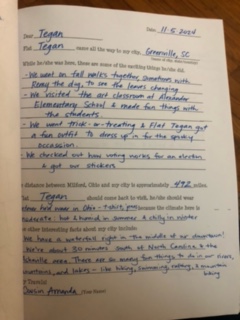 Dear Tegan Date: 11-5-2024
Flat Tegan came all the way to my city, Greenville, SC
While he/she was here, these are some of the exciting things he/she did:
- We went on fall walks together, sometimes with
Remy the dog, to see the leaves changing
- We visited the art classroom at Alexander
Elementary School & made fun things with
the students
- We went trick-or-treating & Flat Tegan got
a fun outfit to dress up in for the spooky
occasion.
- We checked out how voting works for an election
& got our stickers
distance between Milford, Ohio and my city is approximately 492 miles.
Tegan should come back to visit, he/she should wear
t-shirt, jeans because the climate here is
moderate but & humid in summer & chilly in winter
other interesting facts about my city include:
We have a waterfall right in the middle of our downtown!
We're about 30 minutes south of North Carolina & the
Asheville area. There are so many fun things to do in our rivers,
mountains, and lakes - like hiking, swimming, rafting, & mountain
biking
Cousin Amanda